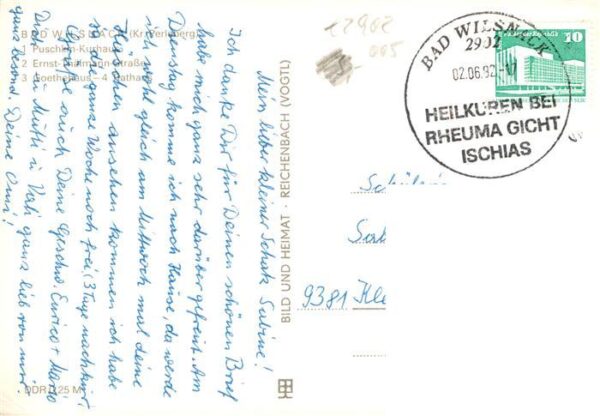 BAD WILSNACK (Kr. Perleberg)
1 Puschkin-Kurhaus
2 Ernst-Thälmann-Straße
3 Goethehaus – 4 Rathaus
Mein lieber kleiner Schatz Sabine!
Ich danke Dir für Deinen schönen Brief
habe mich ganz sehr darüber gefreut. Am
Dienstag komme ich nach Hause, da werde
ich wohl gleich am Mittwoch mal deine
Häschen ansehen kommen ich habe
ja ganze Woche noch frei. (3 Tage nachkur)
Grüße auch Deine Geschw. Enrico + Maiko
Du u. Mutti u Vati ganz lieb von mir
ganz besond. Deine Omi!
DDR 25 M
BILD UND HEIMAT · REICHENBACH (VOGTL)
BAD WILSNACK
2902
02.06.82
HEILKUREN BEI
RHEUMA GICHT
ISCHIAS
10
9381